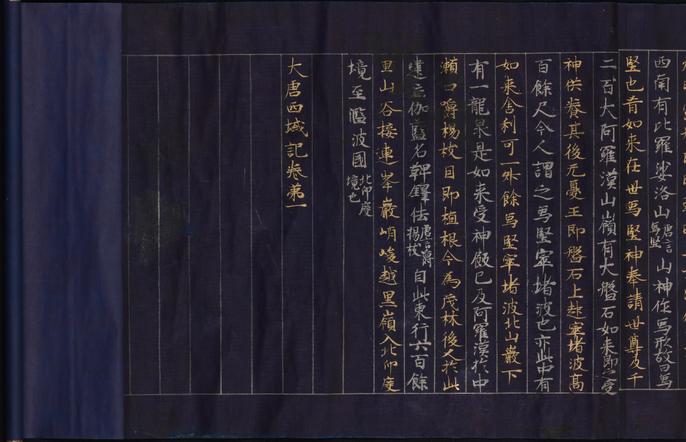 西南有比羅娑洛山唐言象堅山神作象形故曰象
堅也昔如来在世象堅神奉請世尊及千
二百大阿羅漢山巓有大磐石如来即之受
神供養其後无憂王即磐石上起窣堵波高
百餘尺今人謂之象堅窣堵波也亦此中有
如来舍利可一升餘象堅窣堵波北山巖下
有一龍泉是如来受神飯已及阿羅漢於中
漱口嚼楊枝因即植根今為茂林後人於此
建立伽藍名鞞鐸佉唐言嚼楊枝自此東行六百餘
里山谷接連峯巖峭峻越黒嶺入北印度
境至濫波國北印度境也
大唐西域記卷第一